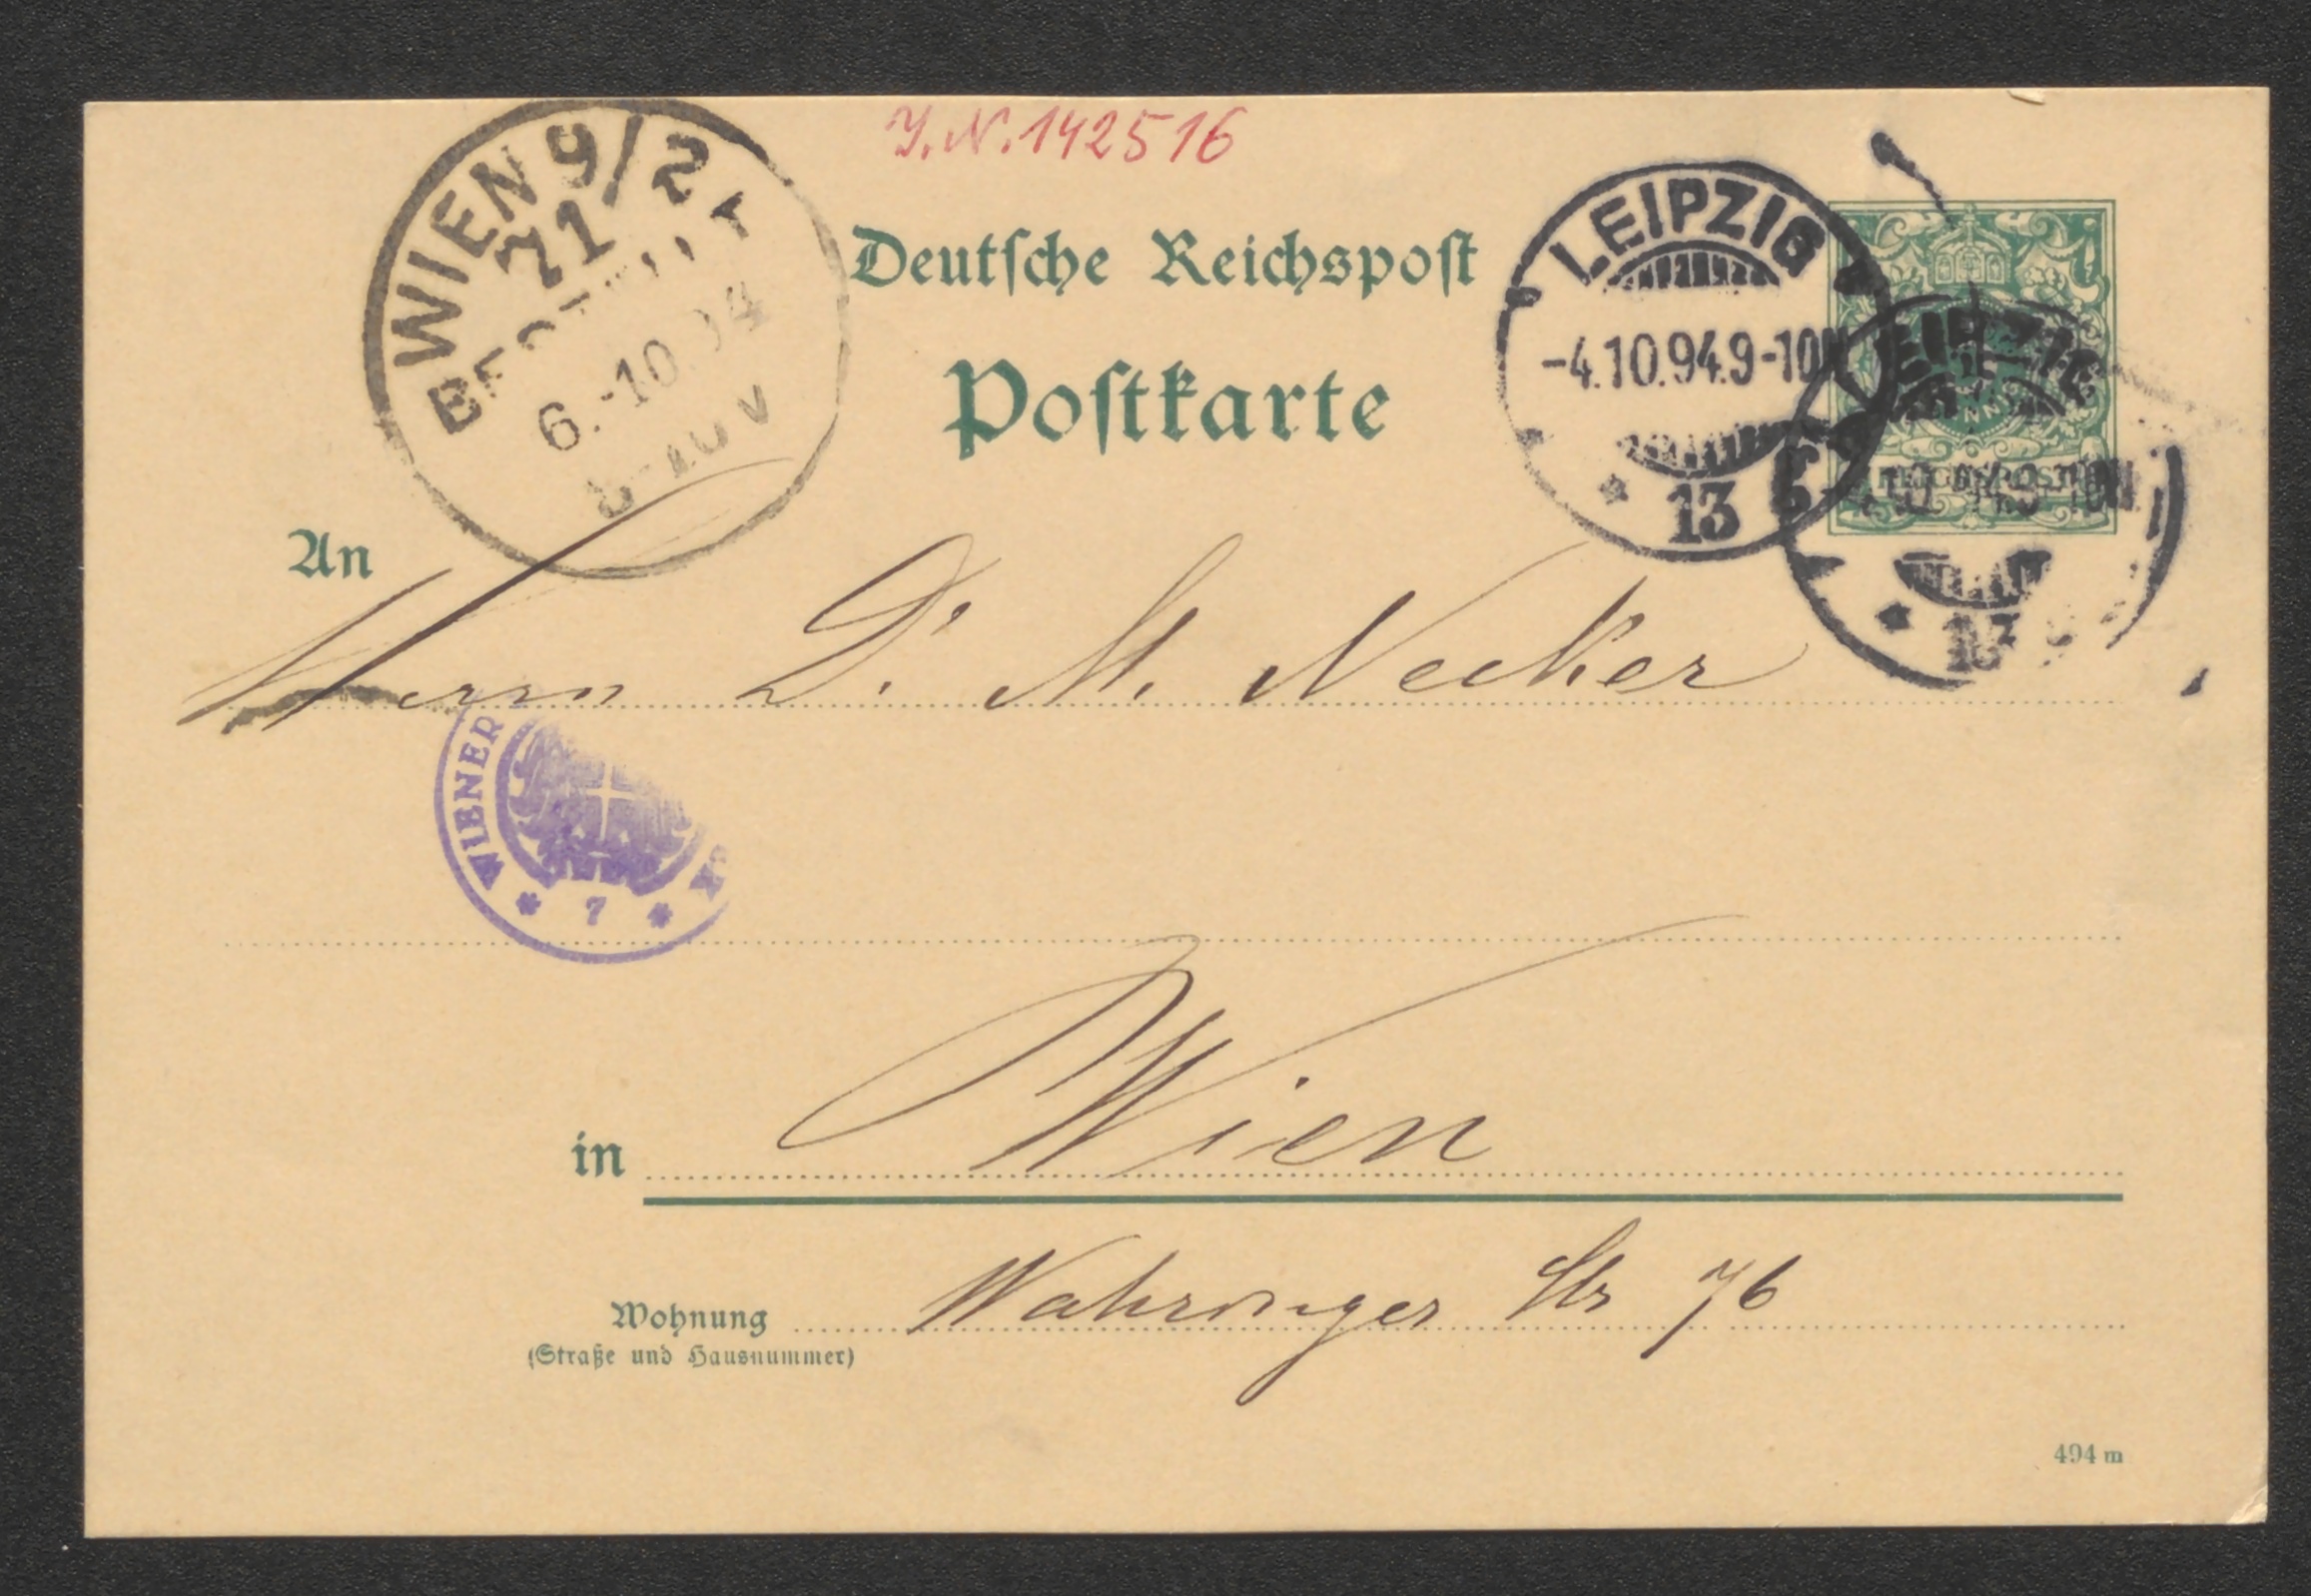 J.N. 142516
WIEN 9/2
71
BESTELLT
6.-10.94
LEIPZIG
-4.10.94.9-10N
13
LEIPZIG
13
REICHSPOST
Deutsche Reichspost
Postkarte
An
Herrn Dr. M. Necker
WIENER
7
in Wien
Wohnung Wahringer Str 76
(Straße und Hausnummer)
494 m